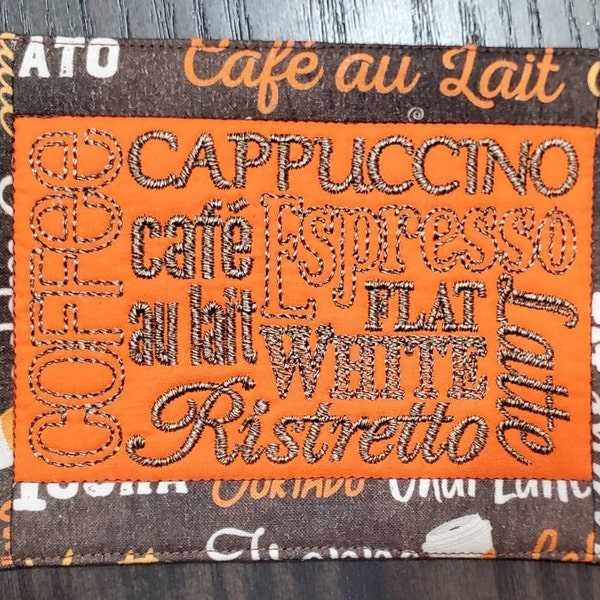 ATO Café au Lait
COFFEE
CAPPUCCINO
café
au lait
Espresso
FLAT
WHITE
Latte
Ristretto
CORTADO